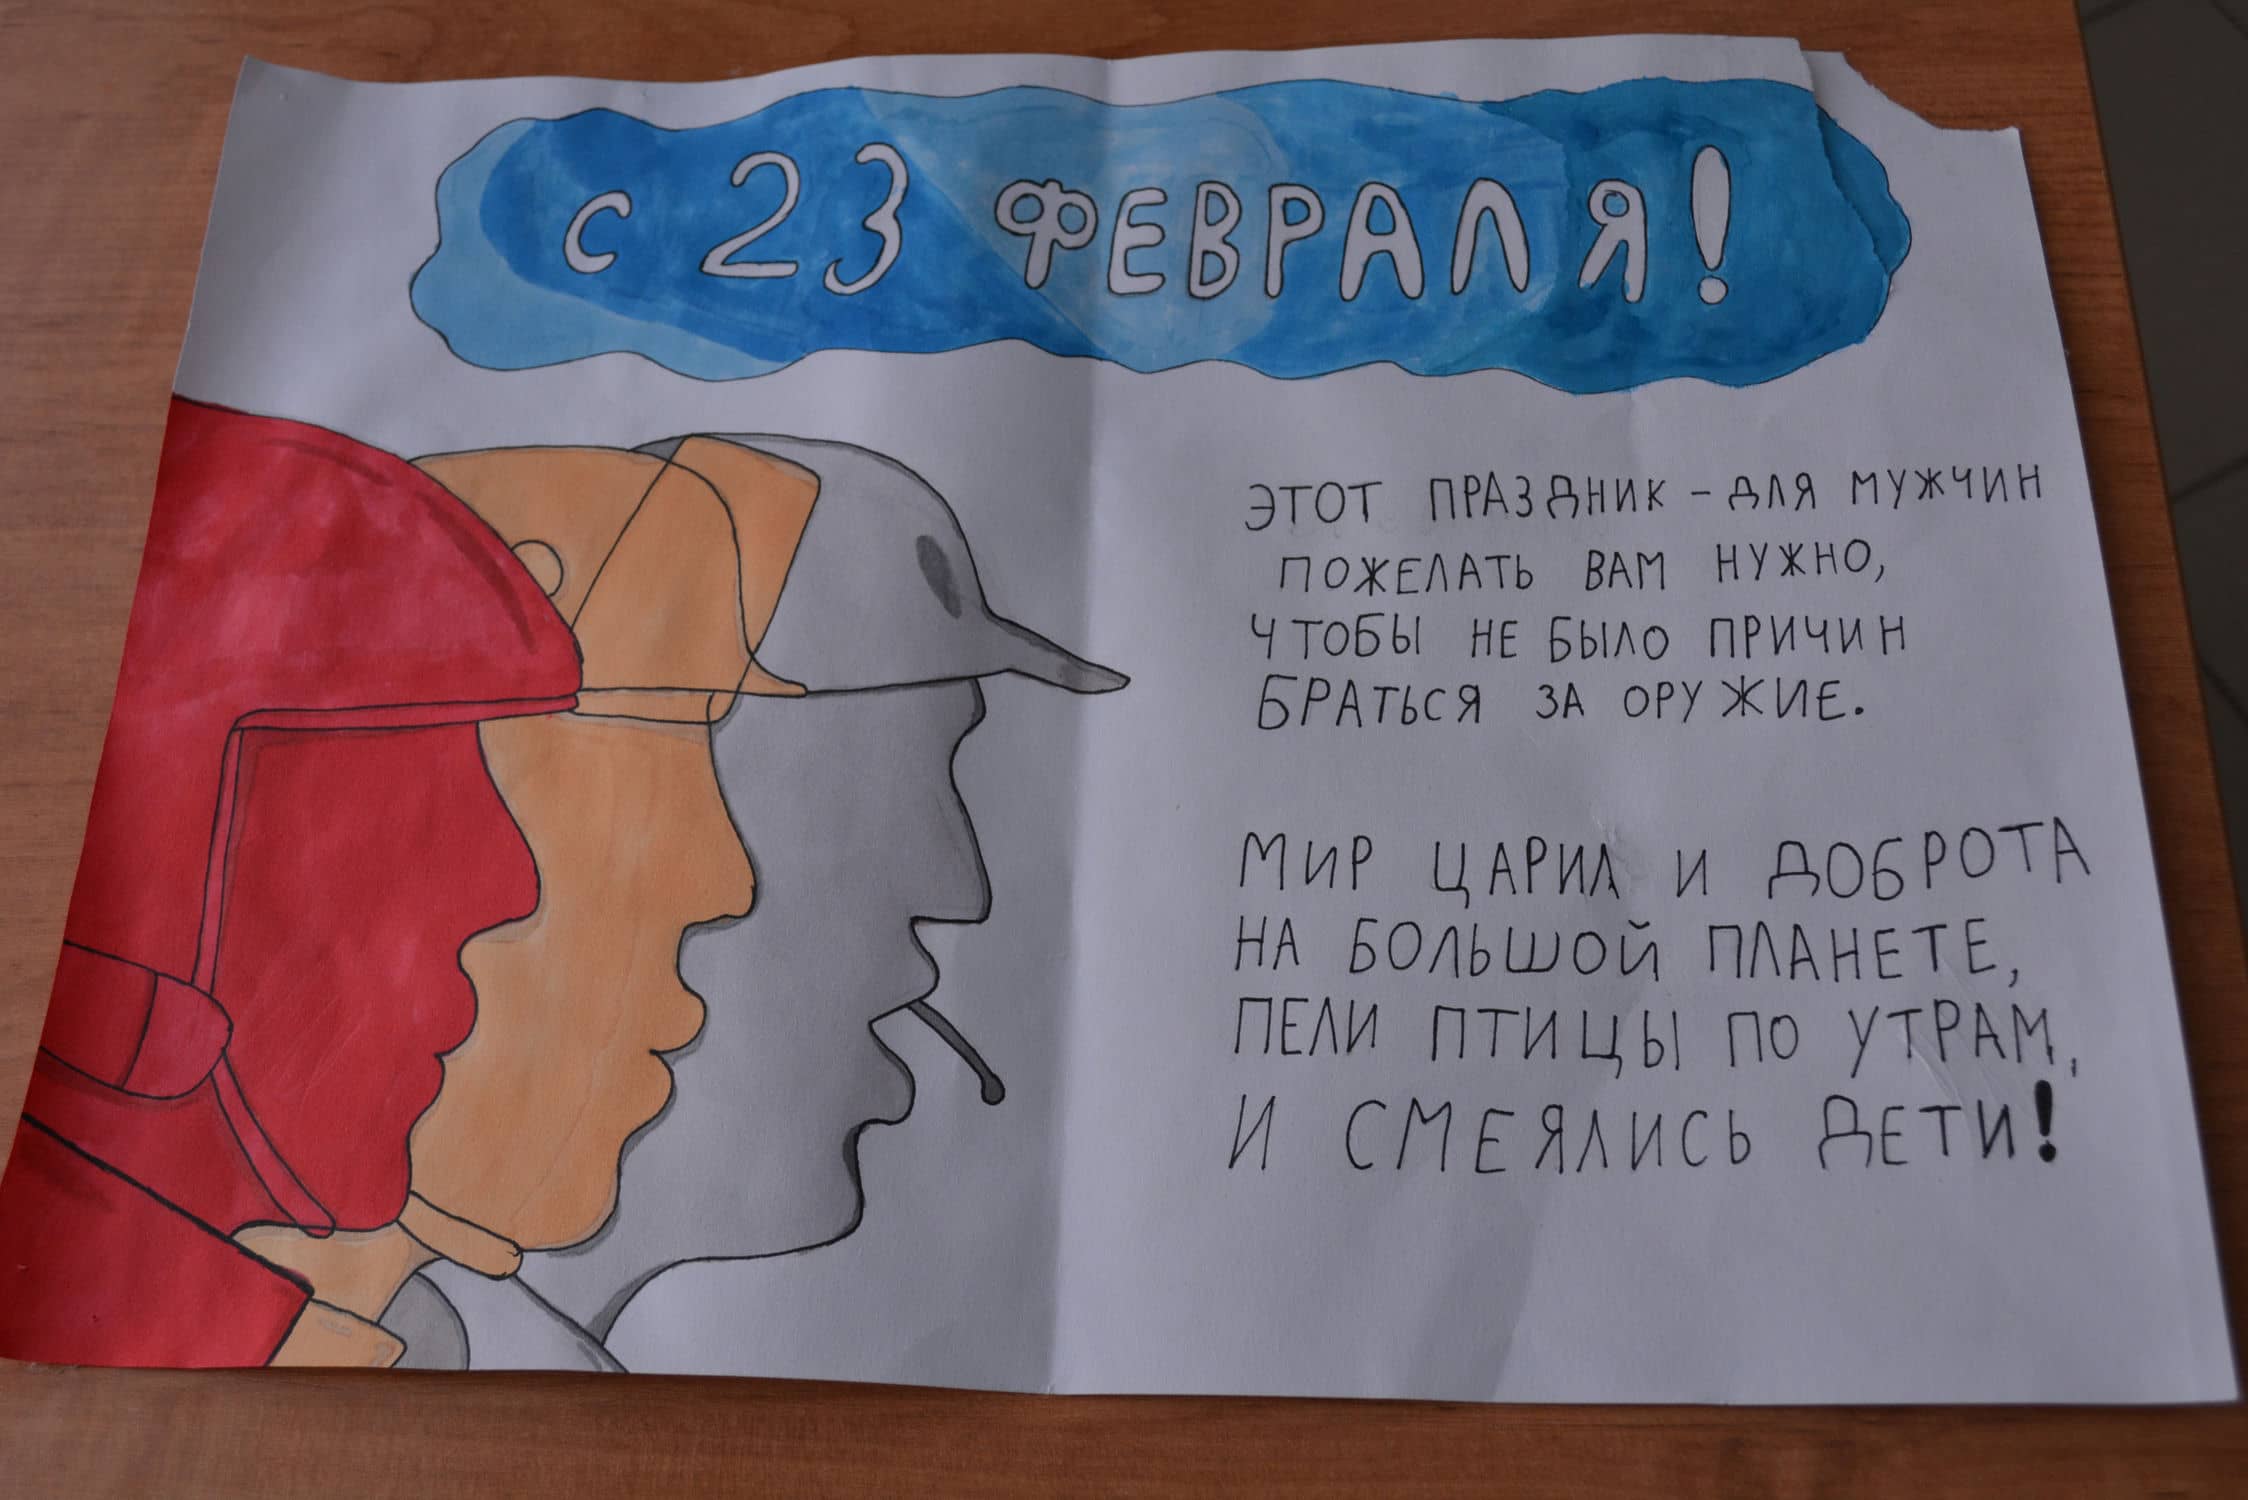 С 23 ФЕВРАЛЯ!
ЭТОТ ПРАЗДНИК - ДЛЯ МУЖЧИН
ПОЖЕЛАТЬ ВАМ НУЖНО,
ЧТОБЫ НЕ БЫЛО ПРИЧИН
БРАТЬСЯ ЗА ОРУЖИЕ.
МИР ЦАРИЛ И ДОБРОТА
НА БОЛЬШОЙ ПЛАНЕТЕ,
ПЕЛИ ПТИЦЫ ПО УТРАМ,
И СМЕЯЛИСЬ ДЕТИ!